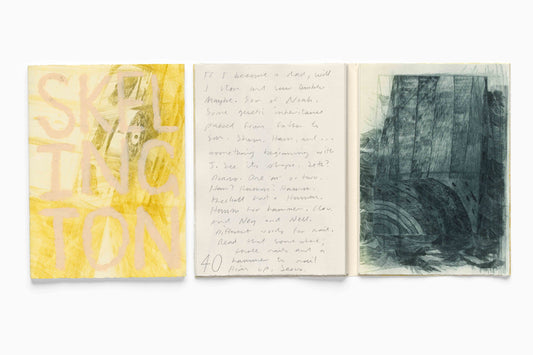 SKEL
ING
TON
If I become a dad, will
I stoop and use
Maybe. Son of Noah.
Some genetic inheritance
passed from father to
Son. Shem, Ham, and...
something beginning with
J. See its shape.
One or two.
Ham? Hamm? Hamm.
had a Hamm,
Hamm for hammer. Clov
and Nag and Nell.
Different words for nail.
Read that somewhere;
nails and a
hammer to nail
them up. Seems.
40